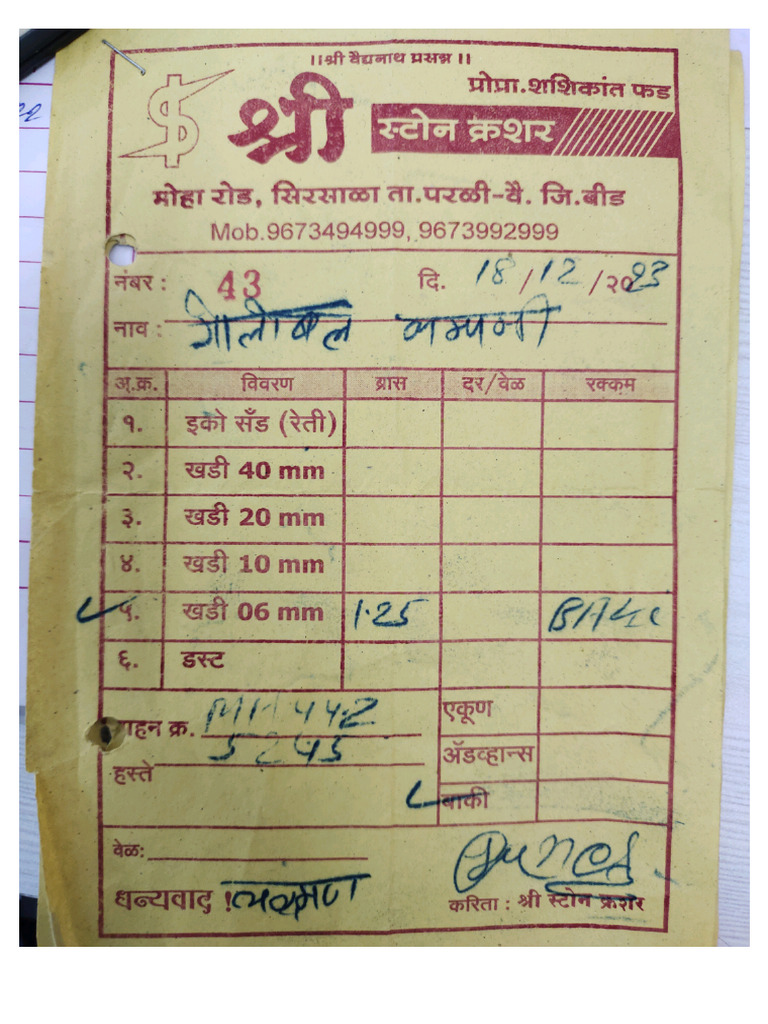 ।।श्री वैद्यनाथ प्रसन्न ।।
प्रोप्रा.शशिकांत फड
श्री स्टोन क्रशर
मोहा रोड, सिरसाळा ता.परळी-वै. जि.बीड
Mob.9673494999, 9673992999
नंबर : 43 दि. 18/12/2023
नाव : गोलोबल कम्पनी
अ.क्र. विवरण ब्रास दर/वेळ रक्कम
१. इको सँड (रेती)
२. खडी 40 mm
३. खडी 20 mm
४. खडी 10 mm
५. खडी 06 mm 1.25
६. डस्ट
वाहन क्र. MH 44.2
5245
एकूण
हस्ते
ॲडव्हान्स
बाकी
वेळ:
धन्यवाद !
करिता : श्री स्टोन क्रशर